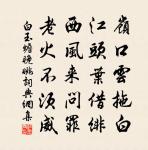 嶺口雲拖白
江頭葉借緋
西風來問罪
老火不須威
白玉蟾晚眺詞典網集